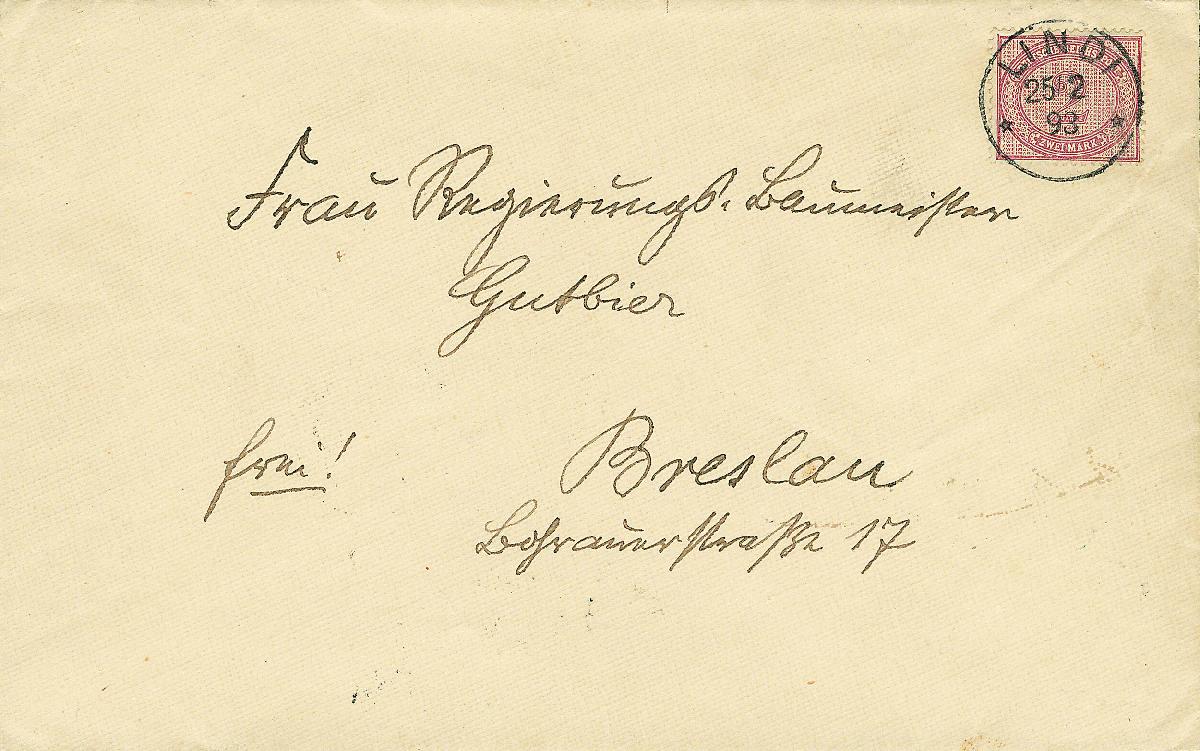 LINDI
25 2
93
2
ZWEI MARK
Frau Regierungs-Baumeister
Gutbier
frei!
Breslau
Bohrauerstraße 17